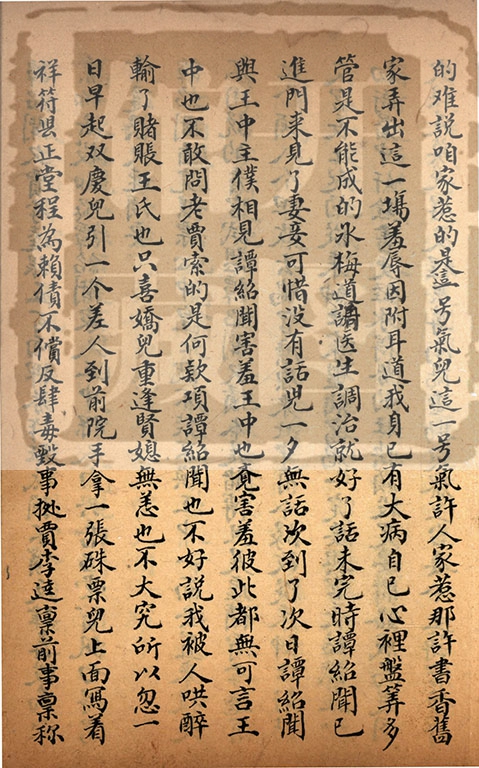 的难説咱家惹的是這一号氣兒這一号氣許人家惹那許書香舊
家弄出這一塲羞辱因附耳道我身已有大病自已心裡盤筭多
管是不能成的氷梅道請医生調治就好了話未完時譚紹聞已
進門来見了妻妾可惜没有話児一夕無話次到了次日譚紹聞
與王中主僕相見譚紹聞害羞王中也竟害羞彼此都無可言王
中也不敢問老賈索的是何款項譚紹聞也不好説我被人哄醉
輸了賭賬王氏也只喜嬌兒重逢賢媳無恙也不大究所以忽一
日早起双慶兒引一个差人到前院手拿一張硃票兒上面寫着
祥符縣正堂程為賴債不償反肆毒毆事㨿賈李逵禀前事禀称